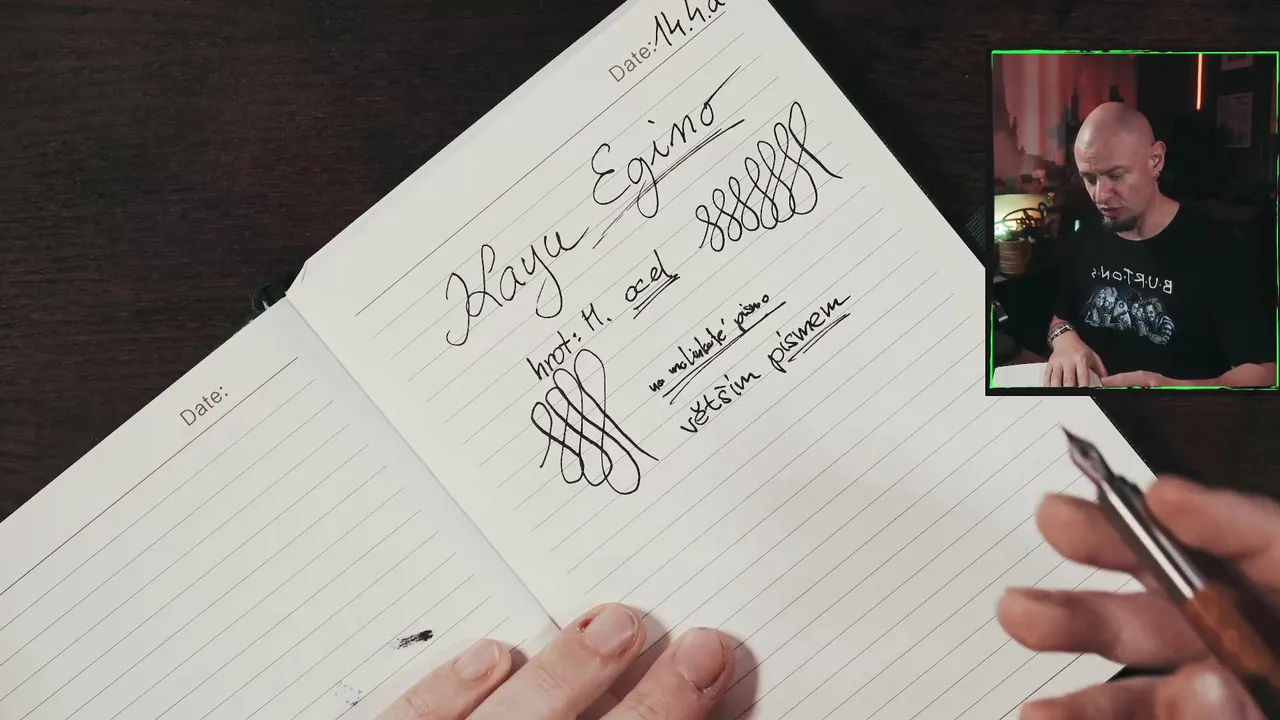 Date: 14.4.a
Kayu Egino
hrot: M. ocel
na malinkaté písmo
větším písmem
Date:
B·U·R·T·O·N·S